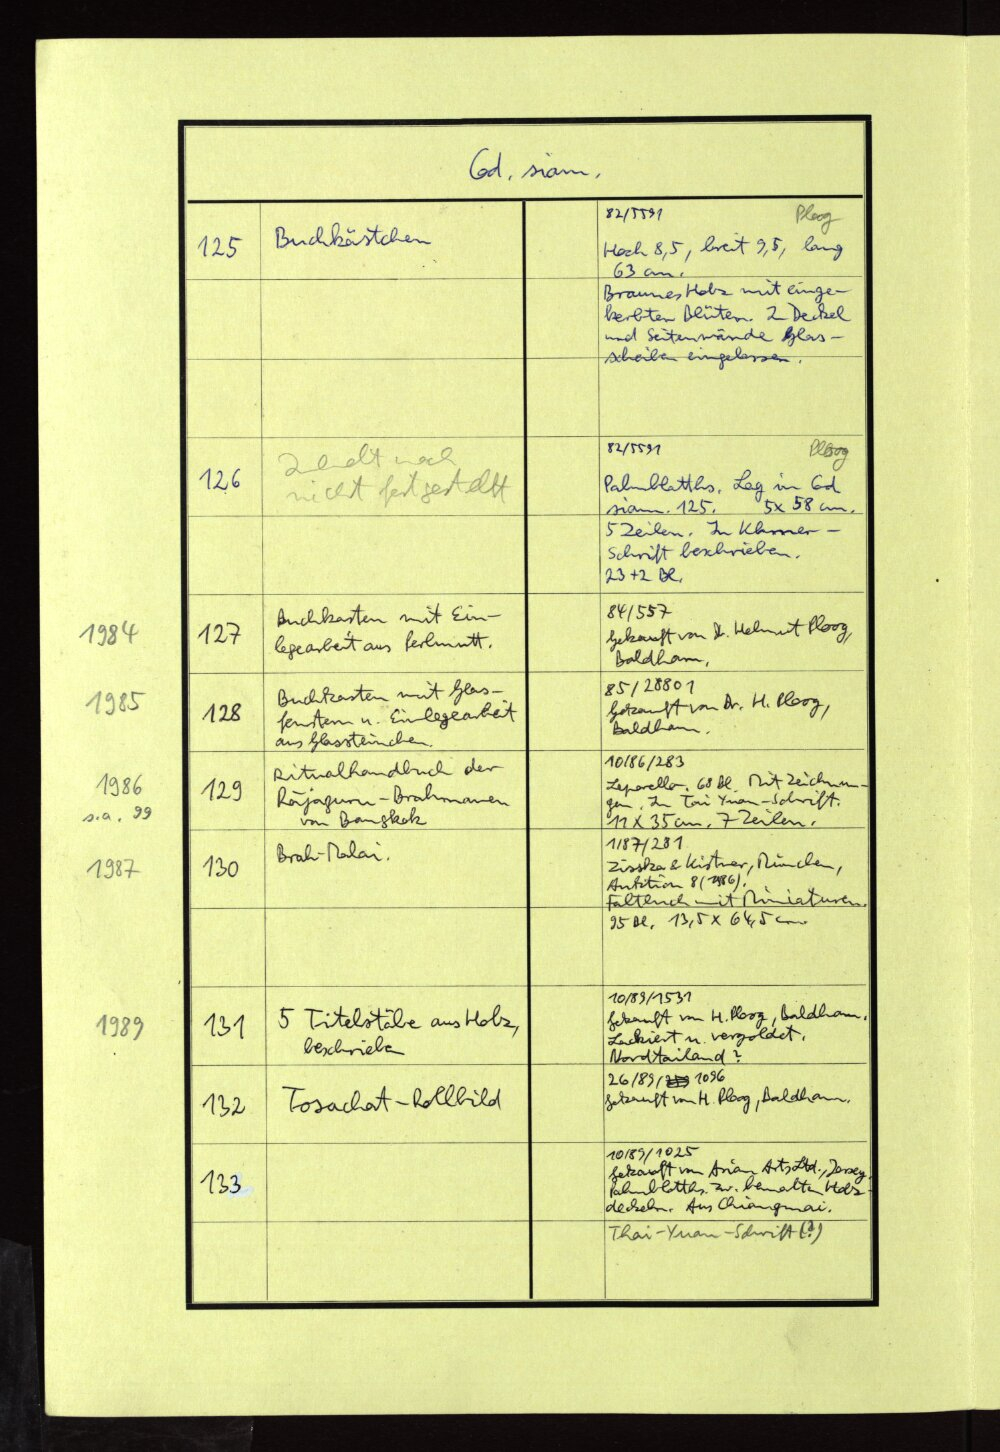 Cod. siam.
125
Buchkästchen
82/5591 Ploog
Hoch 8,5, breit 9,5, lang
63 cm.
Braunes Holz mit einge-
kerbten Blüten. 2 Deckel
und Seitenwände Glas-
scheiben eingelassen.
126
Inhalt noch
nicht festgestellt
82/5591 Ploog
Palmblatths. Lag in Cod
siam. 125. 5x58 cm.
5 Zeilen. In Khmer-
Schrift beschrieben.
23+2 Bl.
1984
127
Buchkasten mit Ein-
legearbeit aus Perlmutt.
84/557
Gekauft von Dr. Helmut Ploog,
Baldham.
1985
128
Buchkasten mit Glas-
fenstern u. Einlegearbeit
aus Glassteinchen.
85/28801
Gekauft von Dr. H. Ploog,
Baldham.
1986
s.a. 99
129
Ritualhandbuch der
Rājaguru-Brahmanen
von Bangkok
10/86/283
Leporello. 68 Bl. Mit Zeichnun-
gen. In Tai Yuan-Schrift.
11 x 35 cm. 7 Zeilen.
1987
130
Brah-Malai.
1/87/281
Zisska & Kistner, München,
Auktion 8 (1986).
Faltbuch mit Miniaturen.
95 Bl. 13,5 x 64,5 cm
1989
131
5 Titelstäbe aus Holz,
beschrieben
10/89/1531
Gekauft von H. Ploog, Baldham.
Lackiert u. vergoldet.
Nordtailand?
132
Tosachat-Rollbild
26/89/ 1096
Gekauft von H. Ploog, Baldham.
133
10/89/1025
Gekauft von Asian Arts Ltd., Jersey
Palmblatths. zw. bemalten Holz-
deckeln. Aus Chiangmai.
Thai-Yuan-Schrift (?)